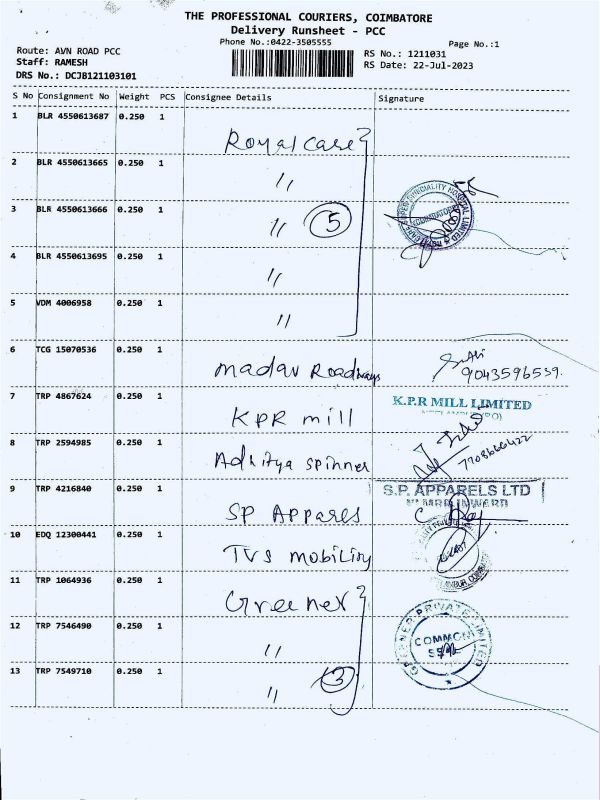 THE PROFESSIONAL COURIERS, COIMBATORE
Delivery Runsheet - PCC
Phone No.:0422-3505555
Page No.:1
Route: AVN ROAD PCC
RS No.: 1211031
Staff: RAMESH
RS Date: 22-Jul-2023
DRS No.: DCJB121103101
S No Consignment No Weight PCS Consignee Details Signature
1 BLR 4550613687 0.250 1 Royalcare
2 BLR 4550613665 0.250 1 "
3 BLR 4550613666 0.250 1 " 5
4 BLR 4550613695 0.250 1 "
5 VDM 4006958 0.250 1 "
6 TCG 15070536 0.250 1 madav Roadways 9043596539.
7 TRP 4867624 0.250 1 KPR mill K.P.R MILL LIMITED
8 TRP 2594985 0.250 1 Adhitya spinner
9 TRP 4216840 0.250 1 SP Appares S.P. APPARELS LTD
10 EDQ 12300441 0.250 1 TVS mobility
11 TRP 1064936 0.250 1 Greener
12 TRP 7546490 0.250 1 " GREENER PRIVATE LIMITED COMMON SEAL
13 TRP 7549710 0.250 1 " 3